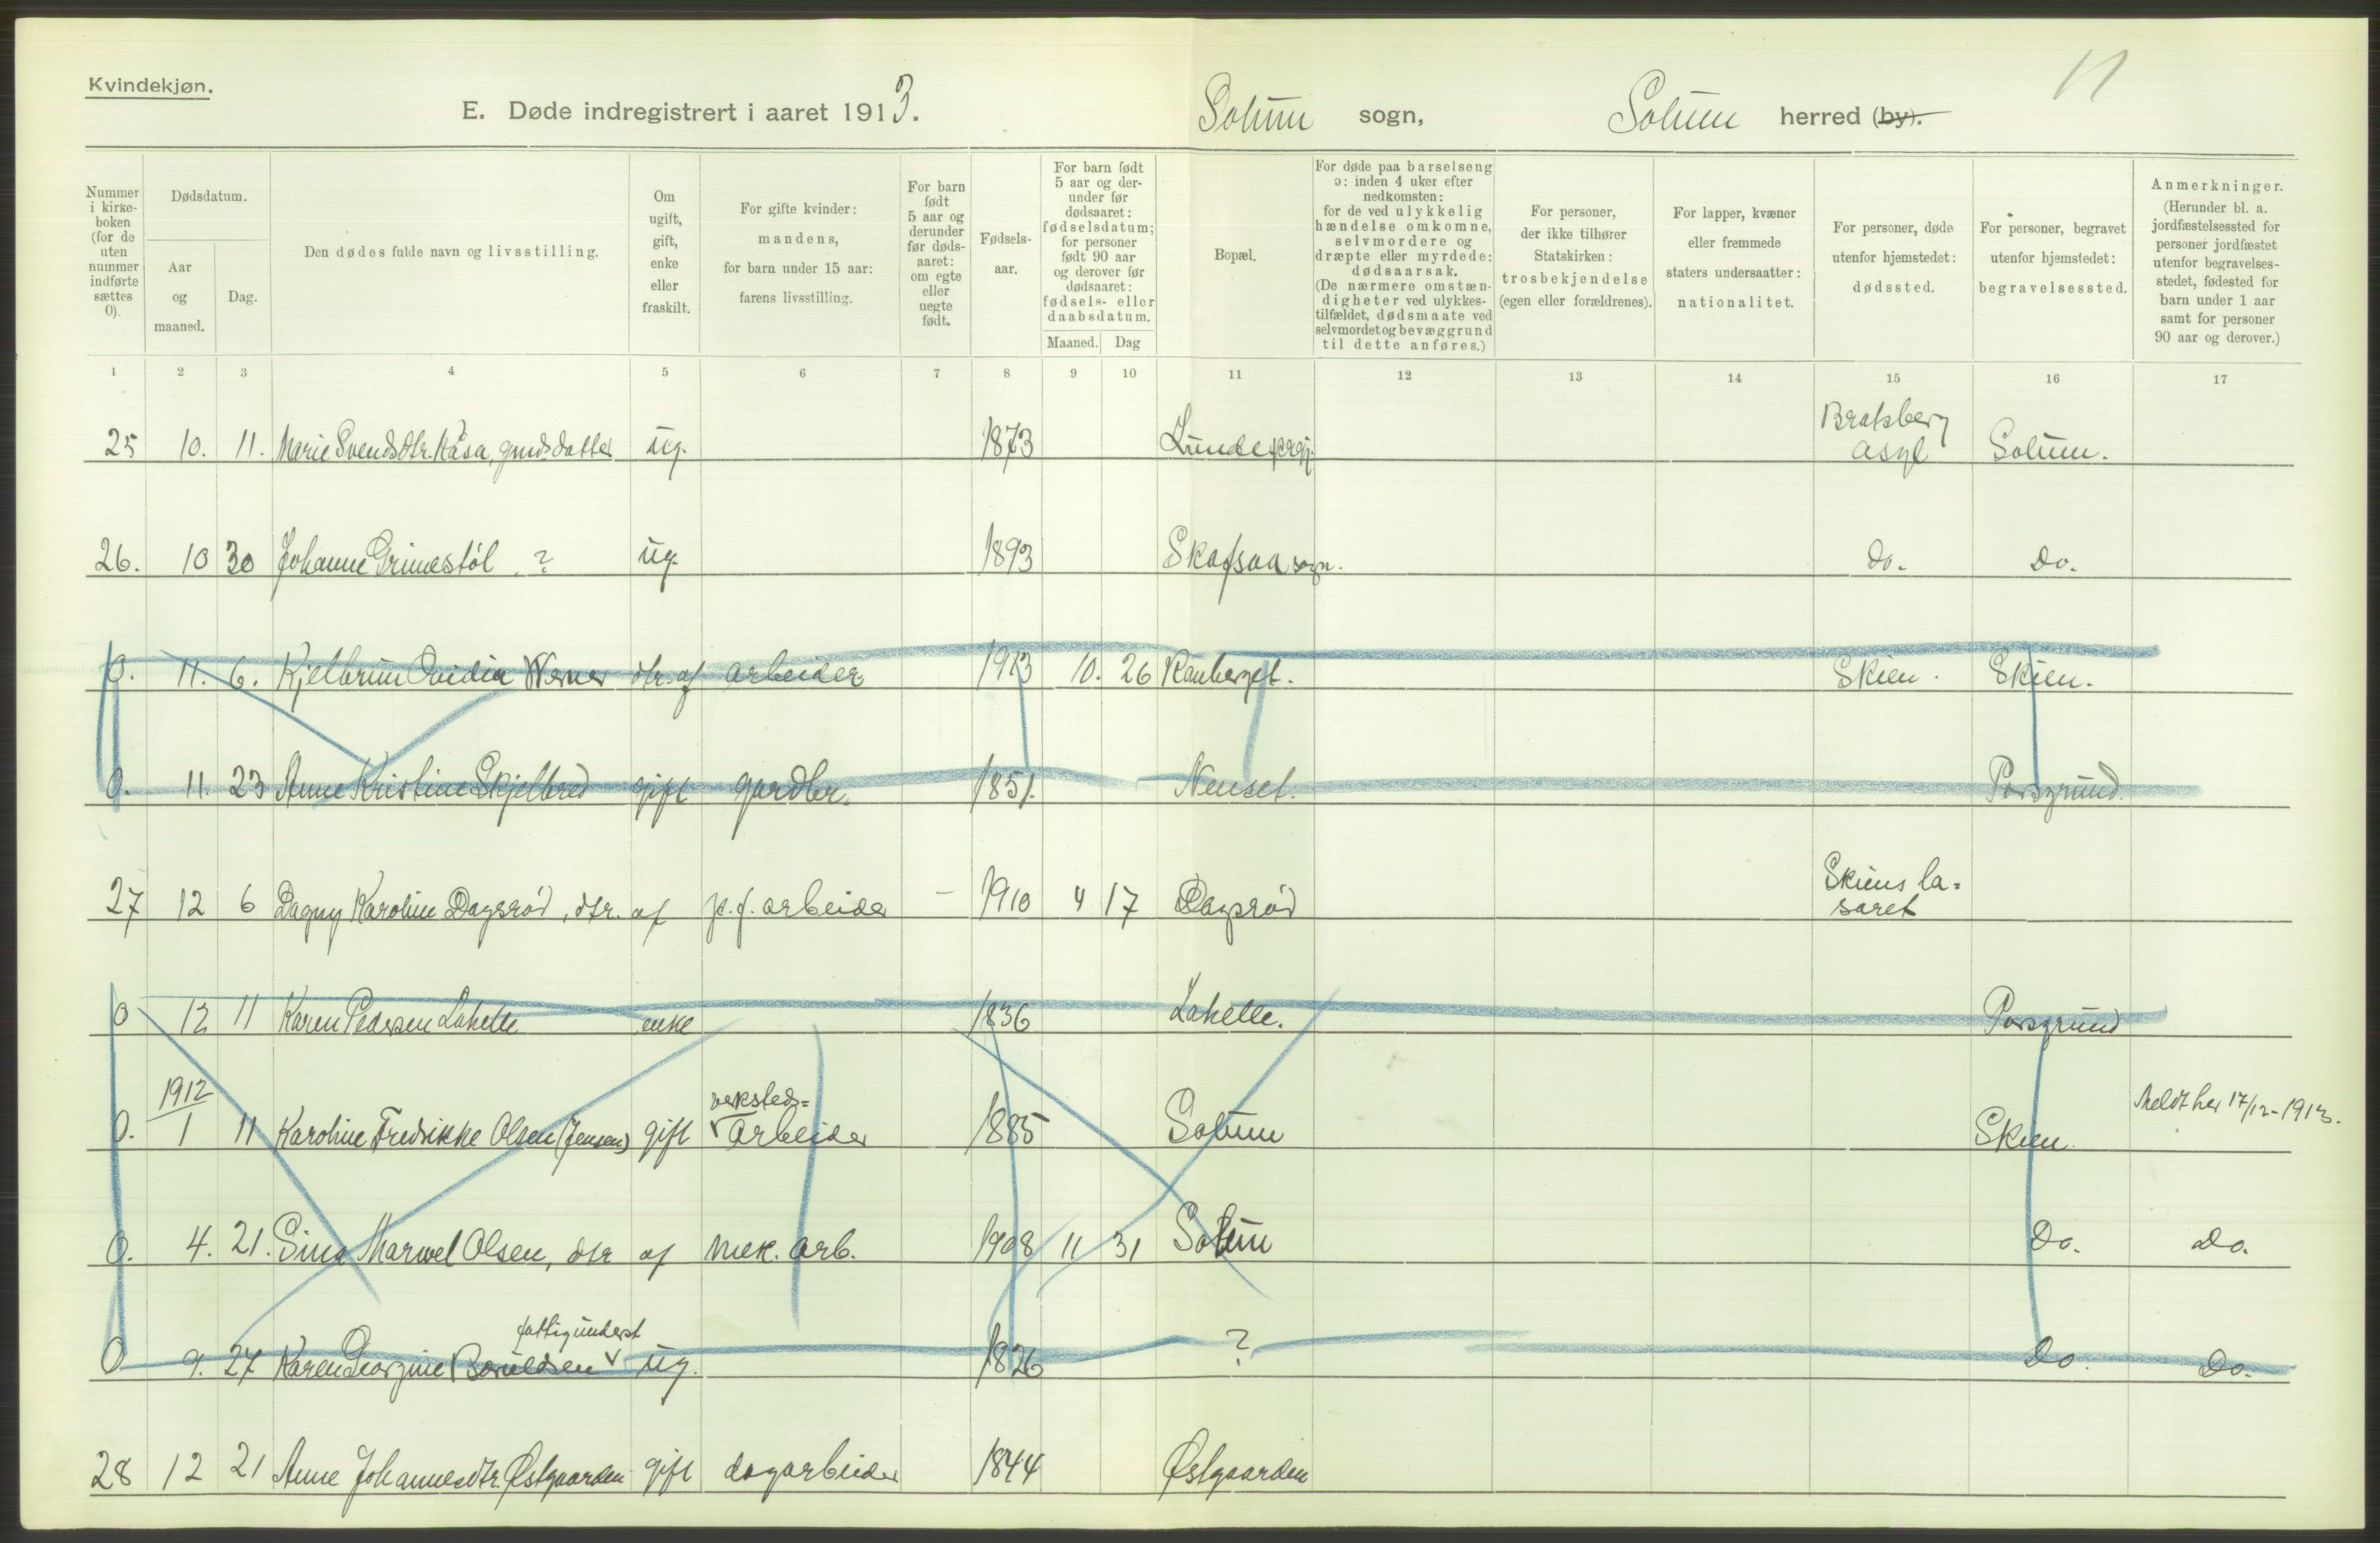 Kvindekjøn.
11
E. Døde indregistrert i aaret 1913. Solum sogn, Solum herred (by).
Nummer i kirke-boken (for de uten nummer indførte sættes 0).
Dødsdatum.
Aar og maaned.
Dag.
Den dødes fulde navn og livsstilling.
Om ugift, gift, enke eller fraskilt.
For gifte kvinder: mandens, for barn under 15 aar: farens livsstilling.
For barn født 5 aar og derunder før døds-aaret: om egte eller uegte født.
Fødsels-aar.
For barn født 5 aar og der-under før dødsaaret: fødselsdatum; for personer født 90 aar og derover før dødsaaret: fødsels- eller daabsdatum.
Maaned. Dag
Bopæl.
For døde paa barselseng ɔ: inden 4 uker efter nedkomsten: for de ved ulykkelig hændelse omkomne, selvmordere og dræpte eller myrdede: dødsaarsak. (De nærmere omstæn-digheter ved ulykkes-tilfældet, dødsmaate ved selvmordet og bevæggrund til dette anføres.)
For personer, der ikke tilhører Statskirken: trosbekjendelse (egen eller forældrenes).
For lapper, kvæner eller fremmede staters undersaatter: nationalitet.
For personer, døde utenfor hjemstedet: dødssted.
For personer, begravet utenfor hjemstedet: begravelsessted.
Anmerkninger. (Herunder bl. a. jordfæstelsessted for personer jordfæstet utenfor begravelses-stedet, fødested for barn under 1 aar samt for personer 90 aar og derover.)
1 2 3 4 5 6 7 8 9 10 11 12 13 14 15 16 17
25 10. 11. Marie Svendsdtr. Kåsa, gmdsdatter ug. 1873 Lunde prgj. Bratsberg asyl Solum.
26. 10 30 Johanne Grimestöl ? ug. 1893 Skafsaa sogn. Do. Do.
0. 11. 6. Kjellrun Ovidia Werner dtr. af arbeider 1913 10. 26 Rauberget. Skien. Skien.
0. 11. 23 Anne Kristine Skjelbred gift gardbr. 1851. Nenset. Porsgrund.
27 12 6 Dagny Karoline Dagsrød, dtr. af j.f. arbeider - 1910 4 17 Dagsrød Skiens la=saret
0 12 11 Karen Pedersen Lahelle enke 1836 Lahelle. Porsgrund
0. 1912 1 11 Karoline Fredrikke Olsen (Jensen) gift verksteds= arbeider 1885 Solum Skien. Meldt her 17/12-1913.
0. 4. 21. Sina Marwel Olsen, dtr af mek. arb. 1908 11 31 Solum Do. Do.
0 9. 27 Karen Georgine fattigunderst ug. 1826 ? Do. Do.
28 12 21 Anne Johannesdtr. Østgaarden gift dagarbeider 1844 Østgaarden